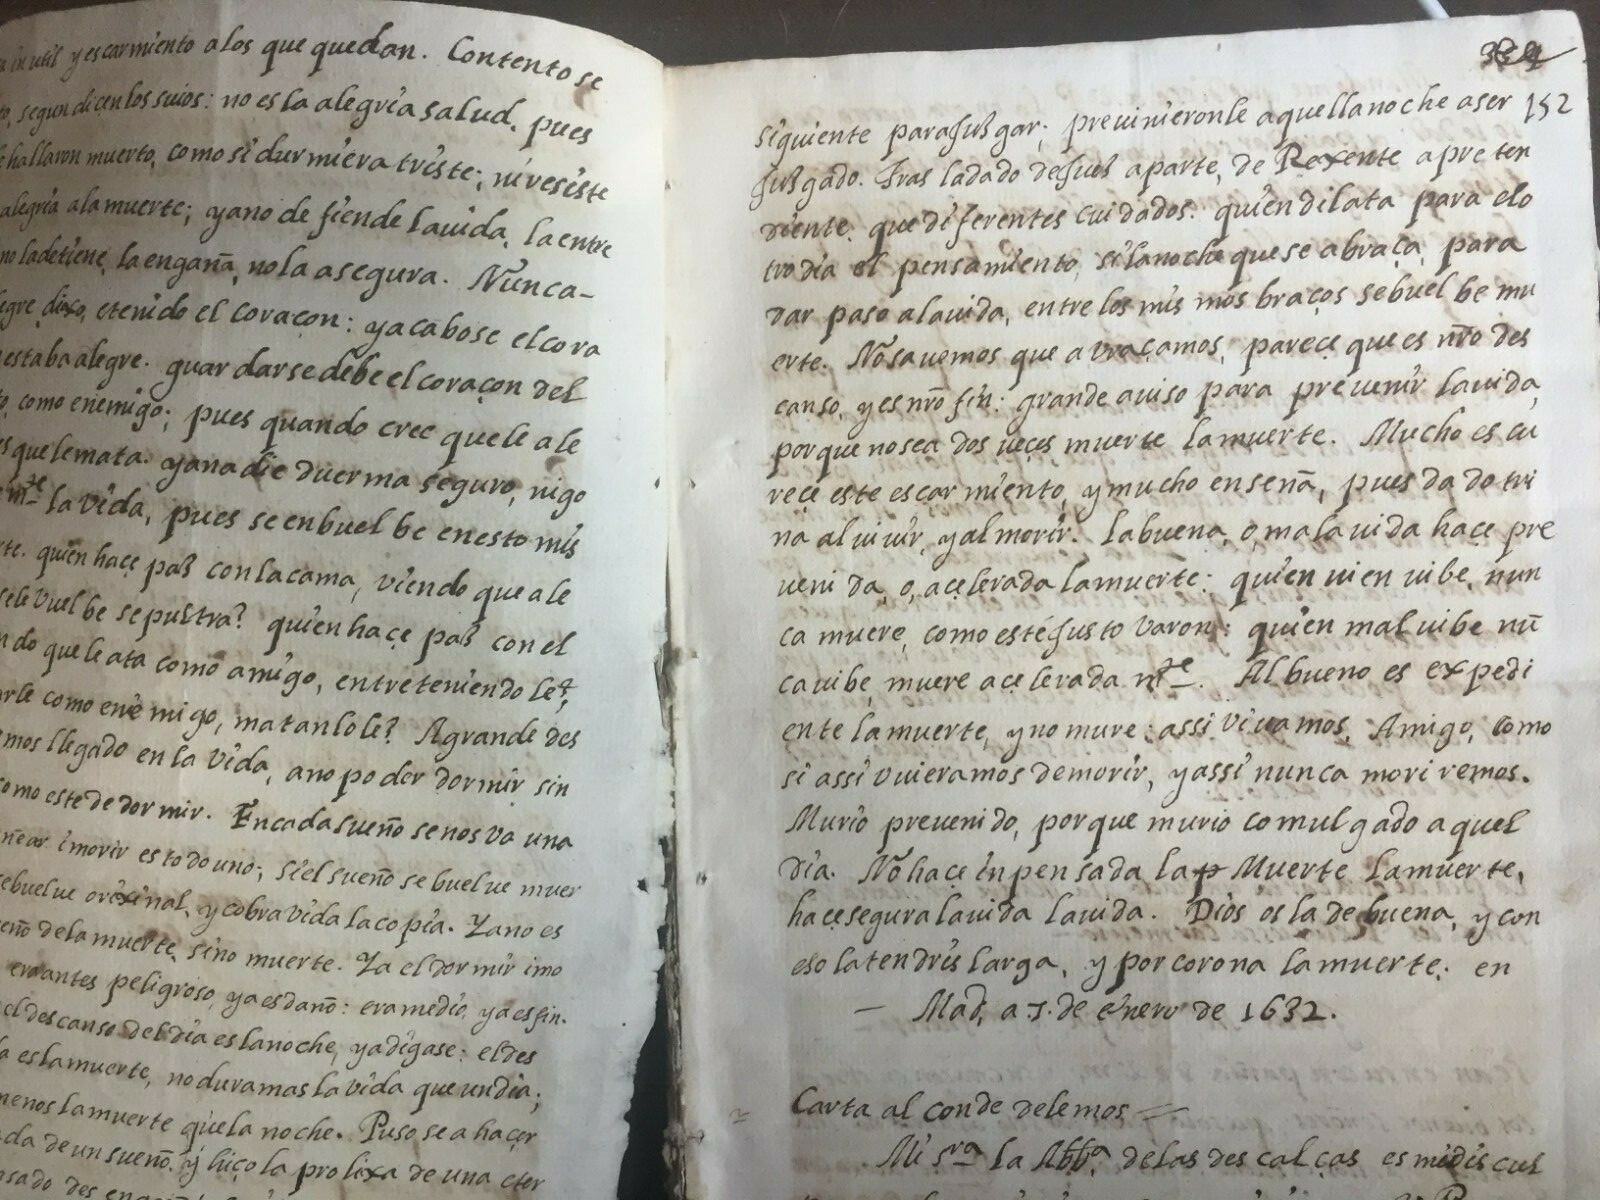 inutil y escarmiento a los que quedan. Contento se
segun dicen los suios: no es la alegria salud, pues
hallaron muerto, como si durmiera triste; ni resiste
alegria a la muerte; ya no defiende la uida, la entre
no la detiene, la engaña, no la asegura. Nunca-
dixo, e tenido el coraçon: y acabose el cora
estaba alegre. guardar se debe el coraçon del
como enemigo; pues quando cree que le ale
que le mata. ya nadie duerma seguro, ni go
la vida, pues se enbuelbe en esto mis
quien haçe paß con la cama, viendo que a le
vuelbe sepultra? quien haçe paß con el
do que le ata como amigo, entreteniendole?,
como enemigo, matanlole? A grande des
mos llegado en la vida, a no poder dormir sin
como este de dormir. En cada sueño se nos va una
i morir es todo uno; si el sueño se buelue muer
ebuelue orixinal, y cobra vida la copia. Ya no es
de la muerte, sino muerte. Ya el dormir imo
era antes peligroso, ya es daño: era medio, ya es fin.
el descanso del dia es la noche, ya digase: el des
es la muerte, no dura mas la vida que un dia;
menos la muerte que la noche. Puso se a haçer
de un sueño. y hiço la prolixa de una eter
352
siguiente para jußgar; preuinieronle aquella noche a ser 152
jußgado. Tras ladado de jueß aparte, de Rexente a preten
diente. que diferentes cuidados. quien dilata para el o
tro dia el pensamiento, si la noche que se abraça, para
dar paso a la uida, entre los mismos braços se buelbe mu
erte. No sauemos que abraçamos, pareçe que es nro des
canso, y es nro fin: grande auiso para preuenir la uida,
porque no sea dos ueçes muerte la muerte. Mucho es cu
reçe este escarmiento, y mucho enseña, pues da dotri
na al uiuir, y al morir. la buena, o, mala uida haçe pre
uenida, o, açelerada la muerte: quien uien uibe, nun
ca muere, como este justo varon: quien mal uibe nū
ca uibe, muere açelerada mte. Al bueno es expedi
ente la muerte, y no mure: assi viuamos, Amigo, como
si assi vuieramos de morir, y assi nunca moriremos.
Murio preuenido, porque murio comulgado aquel
dia. No haçe inpensada la Muerte la muerte,
haçe segura la uida la uida. Dios os la de buena, y con
eso la tendris larga, y por corona la muerte. en
— Mad, a 7. de enero de 1632.
Carta al conde de lemos
Mi sra la Abba de las descalças es mi discul